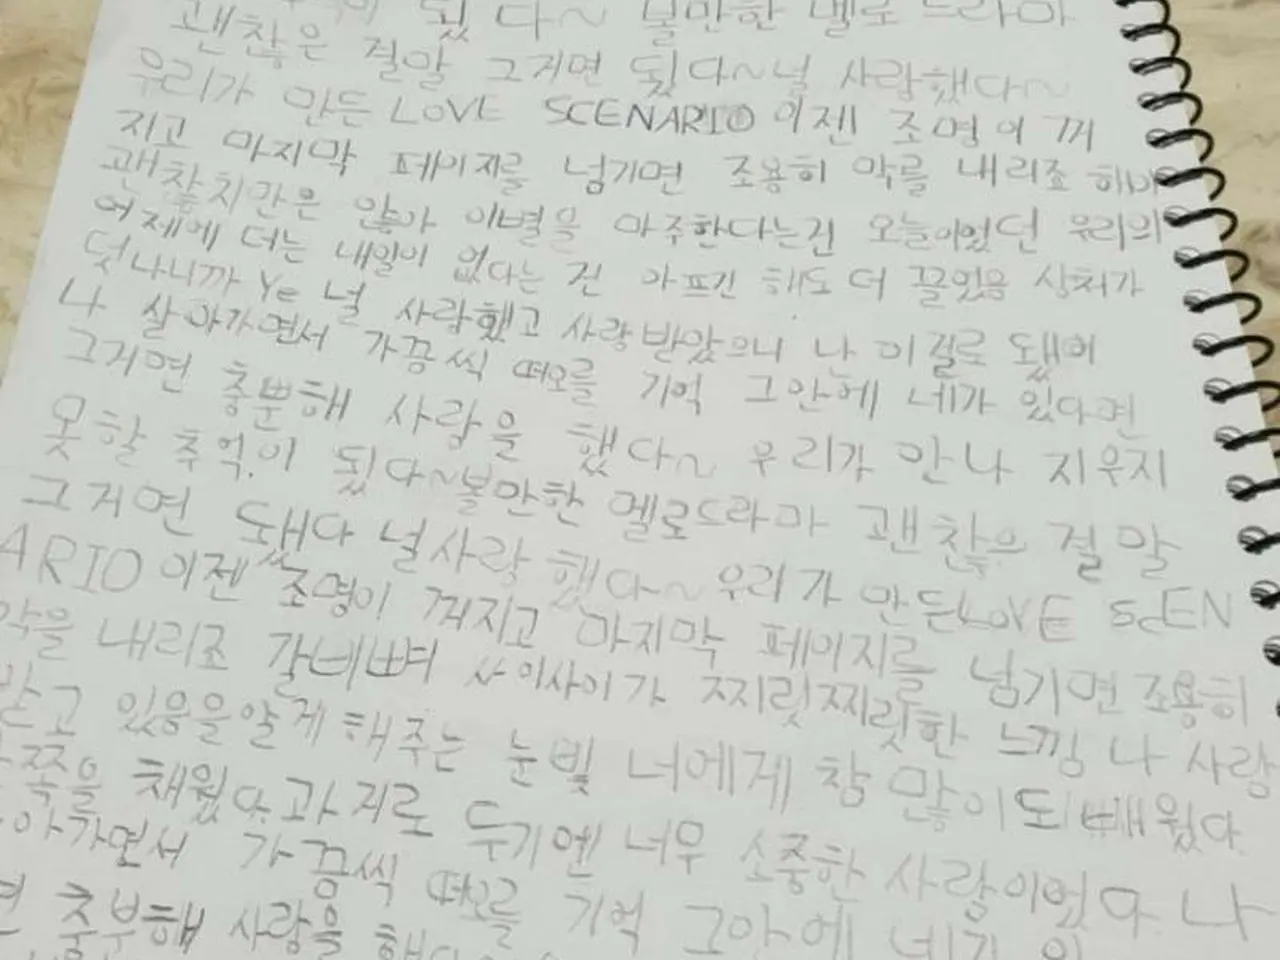 됬다~ 볼만한 멜로 드라마
괜찮은 결말 그거면 됬다~널 사랑했다~
우리가 만든 LOVE SCENARIO 이젠 조명이 꺼
지고 마지막 페이지를 넘기면 조용히 막를 내리죠
괜찮치만은 않아 이별을 마주한다는건 오늘이었던 우리의
어제에 더는 내일이 없다는 건 아프긴 해도 더 끌었음 상처가
덧나니까 Ye 널 사랑했고 사랑 받았으니 난 이걸로 됐어
나 살아가면서 가끔씩 떠오를 기억 그안에 네가 있다면
그거면 충뿐해 사랑을 했다~ 우리가 만나 지우지
못할 추억.이 됬다~볼만한 멜로드라마 괜찮은 결말
그거면 돼다 널사랑 했다~ 우리가 만든LOVE SPEN
ARIO 이젠 조명이 꺼지고 마지막 페이지를 넘기면 조용히
막을 내리조 갈비뼈 사이사이가 찌릿찌릿한 느낌 나 사랑
받고 있음을알게 해주는 눈빛 너에게 참 많이도 배웠다.
쪽을 채웠다.과거로 두기엔 너무 소중한 사람이었다. 나
아가면서 가끔씩 떠오를 기억 그안에 네가
충부해 사랑을